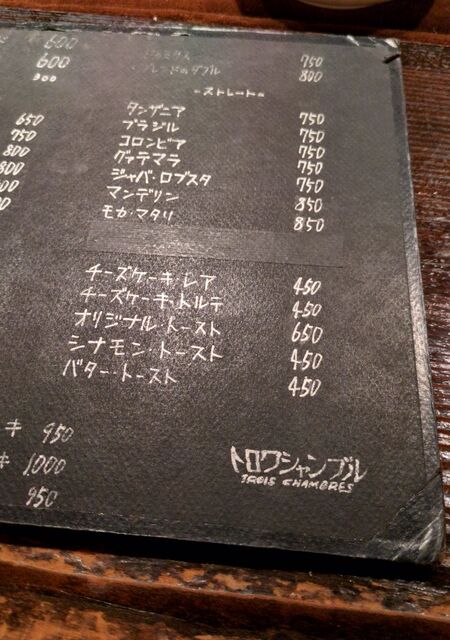 600
600
300
650
750
800
800
ニルミクス 750
ブレンドのダブル 800
-ストレート-
タンザニア 750
ブラジル 750
コロンビア 750
グァテマラ 750
ジャバ・ロブスタ 750
マンデリン 850
モカ・マタリ 850
チーズケーキ・レア 450
チーズケーキ・トルテ 450
オリジナル・トースト 650
シナモン・トースト 450
バター・トースト 450
キ 950
キ 1000
950
トロワシャンブル
TROIS CHAMBRES